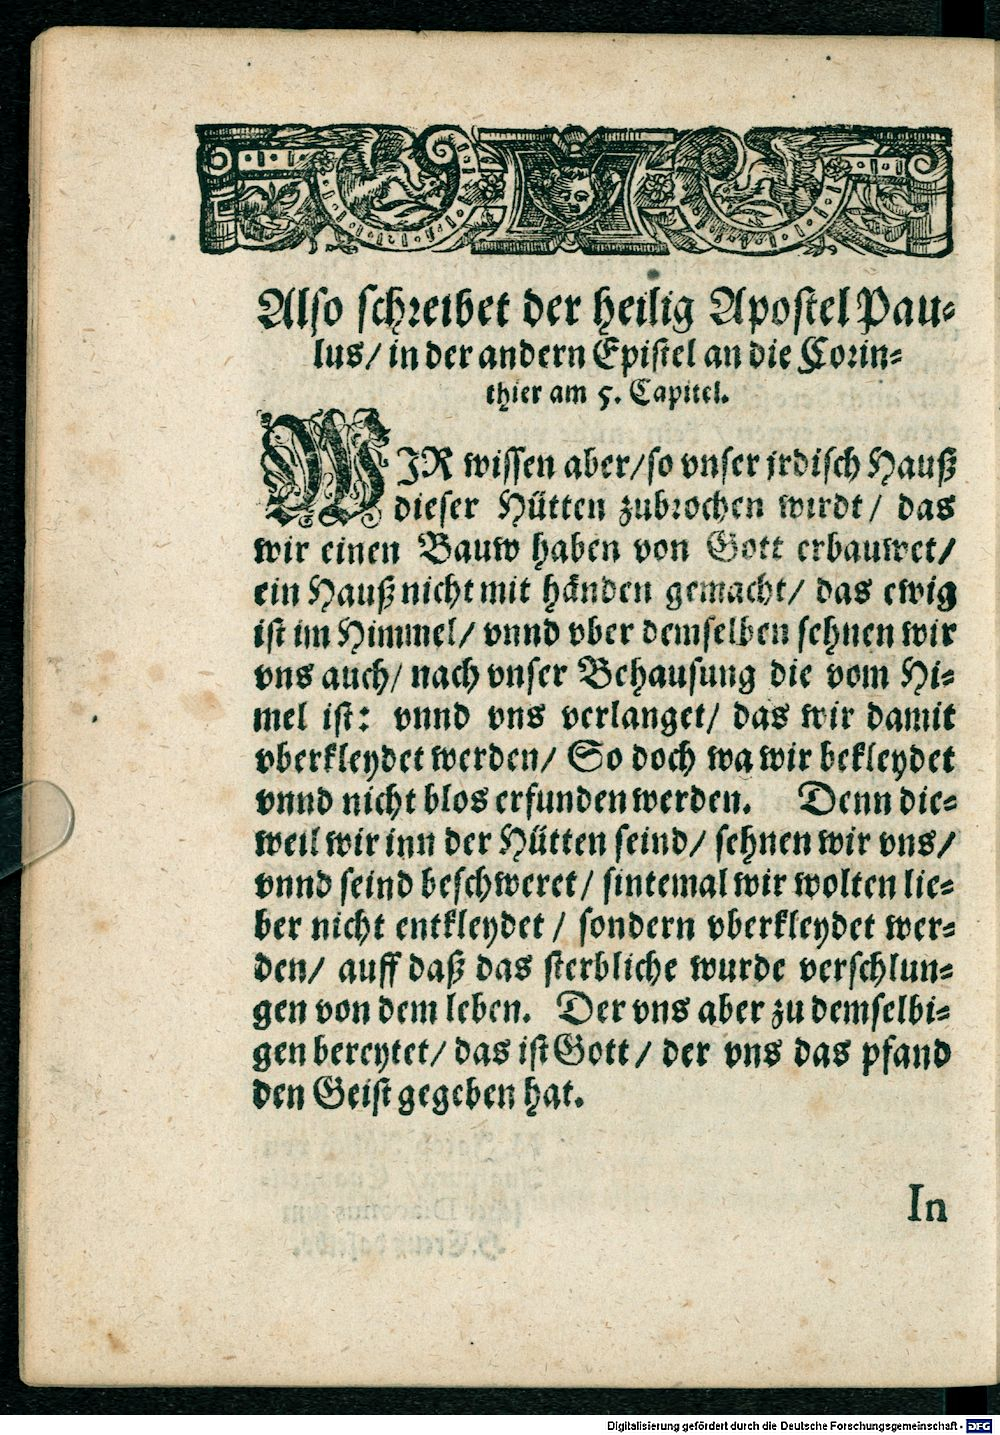 Also schreibet der heilig Apostel Pau-
lus/ in der andern Epistel an die Corin-
thier am 5. Capitel.
WIR wissen aber/ so vnser jrdisch Hauß
dieser Hütten zubrochen wirdt/ das
wir einen Bauw haben von Gott erbauwet/
ein Hauß nicht mit händen gemacht/ das ewig
ist im Himmel/ vnnd vber demselben sehnen wir
vns auch/ nach vnser Behausung die vom Hi-
mel ist: vnnd vns verlanget/ das wir damit
vberkleydet werden/ So doch wa wir bekleydet
vnnd nicht blos erfunden werden. Denn die-
weil wir inn der Hütten seind/ sehnen wir vns/
vnnd seind beschweret/ sintemal wir wolten lie-
ber nicht entkleydet/ sondern vberkleydet wer-
den/ auff daß das sterbliche wurde verschlun-
gen von dem leben. Der vns aber zu demselbi-
gen bereytet/ das ist Gott/ der vns das pfand
den Geist gegeben hat.
In
Digitalisierung gefördert durch die Deutsche Forschungsgemeinschaft - DFG